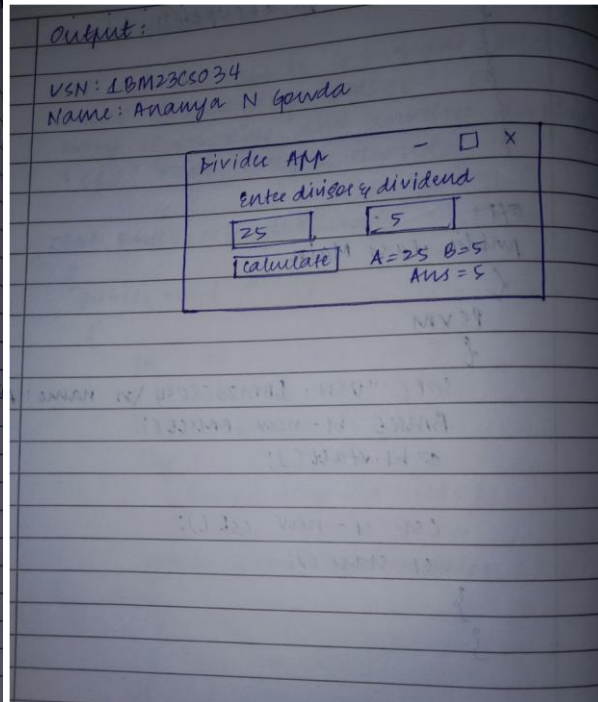 Output:
USN: 1BM23CS034
Name: Ananya N Gowda
Divider App - □ X
Enter divisor & dividend
25 5
calculate A=25 B=5
Ans = 5